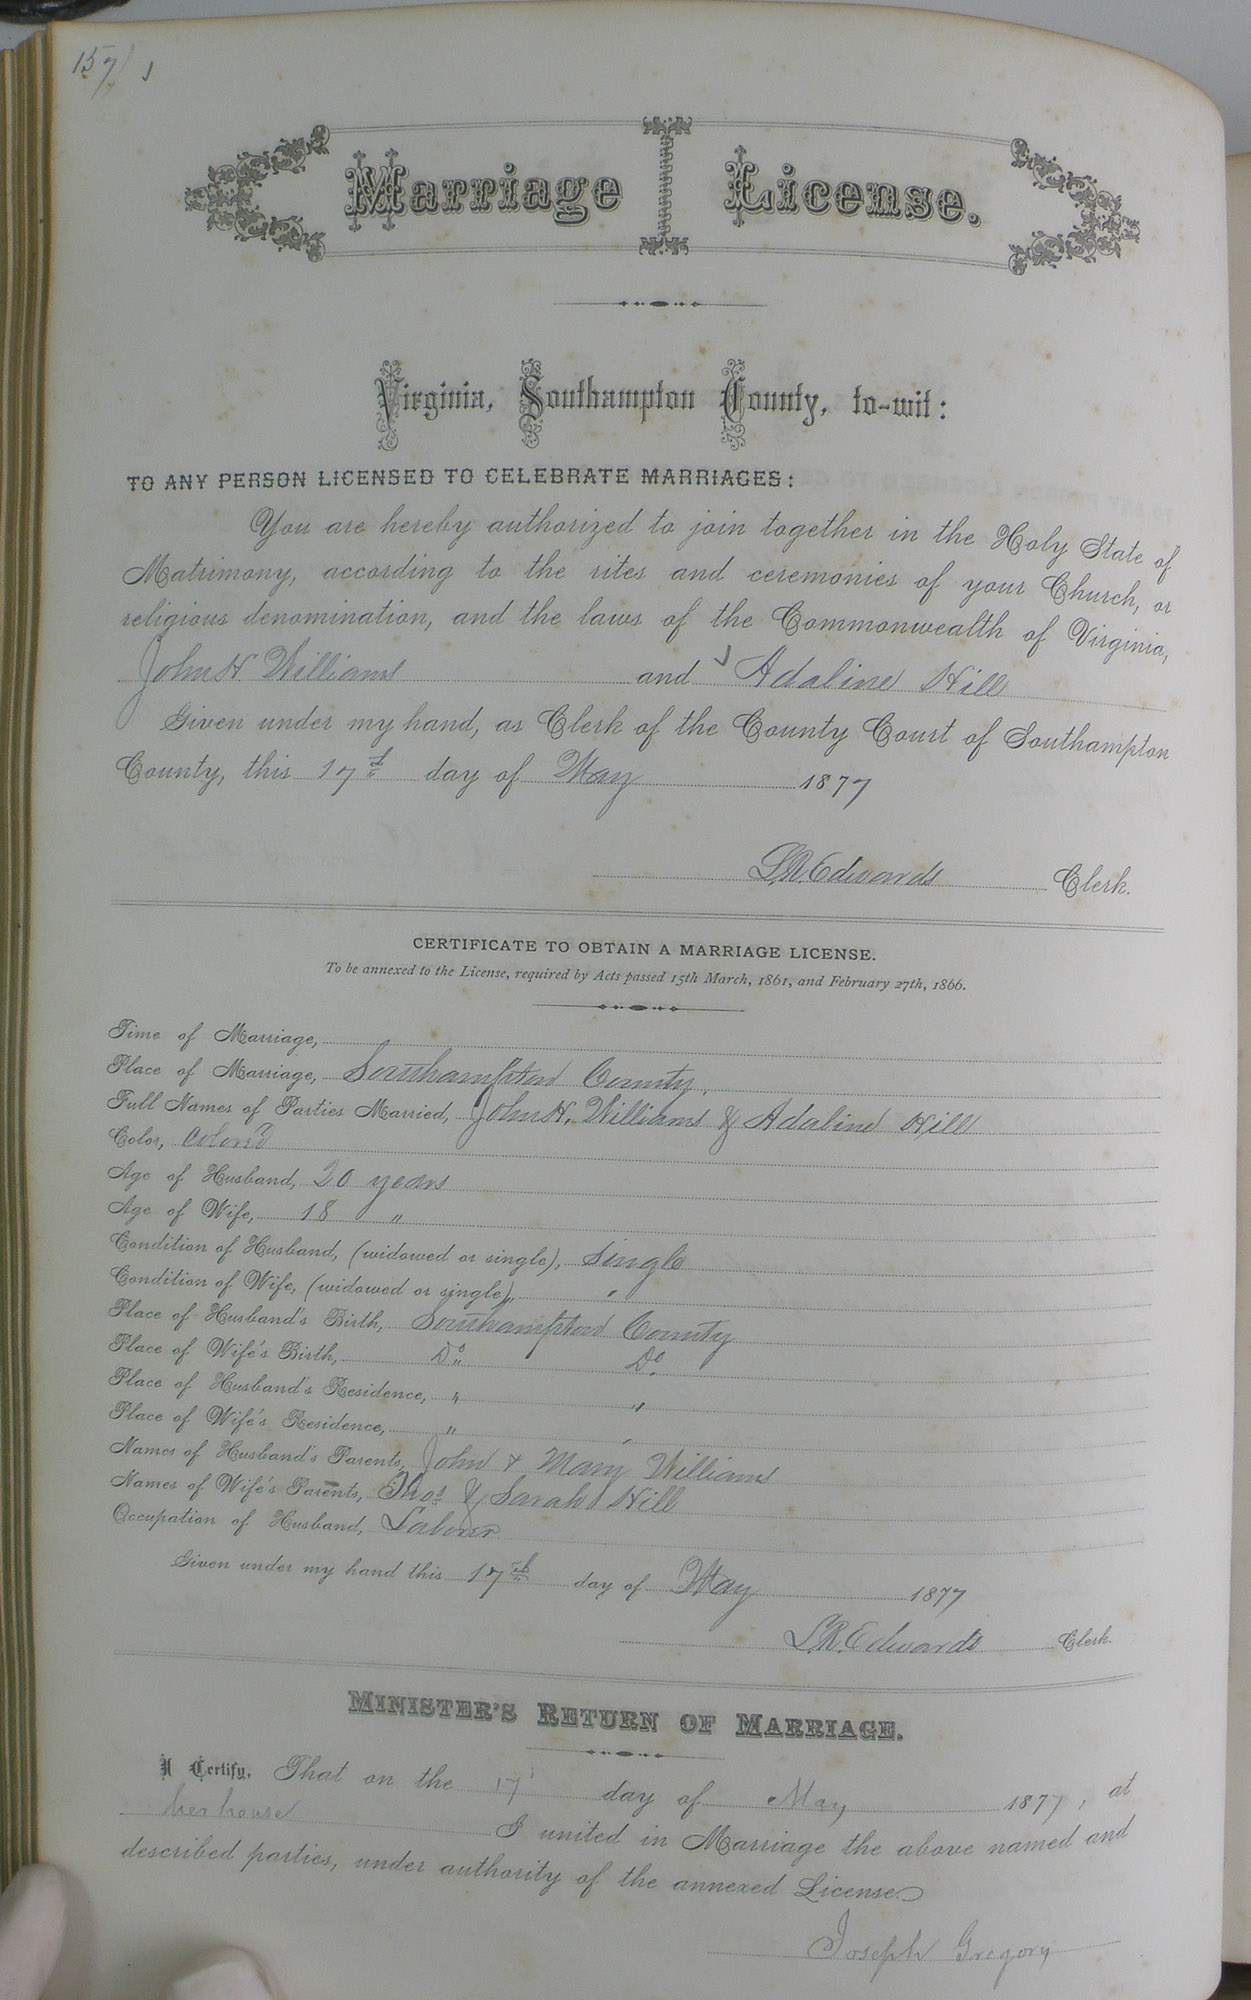 157/1
Marriage License.
Virginia, Southampton County, to-wit:
TO ANY PERSON LICENSED TO CELEBRATE MARRIAGES:
You are hereby authorized to join together in the Holy State of
Matrimony, according to the rites and ceremonies of your Church, or
religious denomination, and the laws of the Commonwealth of Virginia,
John H Williams and Adaline Hill
Given under my hand, as Clerk of the County Court of Southampton
County, this 17th day of May 1877
L.R. Edwards Clerk.
CERTIFICATE TO OBTAIN A MARRIAGE LICENSE.
To be annexed to the License, required by Acts passed 15th March, 1861, and February 27th, 1866.
Time of Marriage,
Place of Marriage, Southampton County.
Full Names of Parties Married, John H. Williams & Adaline Hill
Color, Colord
Age of Husband, 20 years
Age of Wife, 18 "
Condition of Husband, (widowed or single), Single
Condition of Wife, (widowed or single), "
Place of Husband's Birth, Southampton County
Place of Wife's Birth, Do Do
Place of Husband's Residence, " "
Place of Wife's Residence, " "
Names of Husband's Parents, John & Mary Williams
Names of Wife's Parents, Thos & Sarah Hill
Occupation of Husband, Laborer
Given under my hand this 17th day of May 1877
L.R. Edwards Clerk.
MINISTER'S RETURN OF MARRIAGE.
I Certify, That on the 17 day of May 1877, at
her house I united in Marriage the above named and
described parties, under authority of the annexed License.
Joseph Gregory